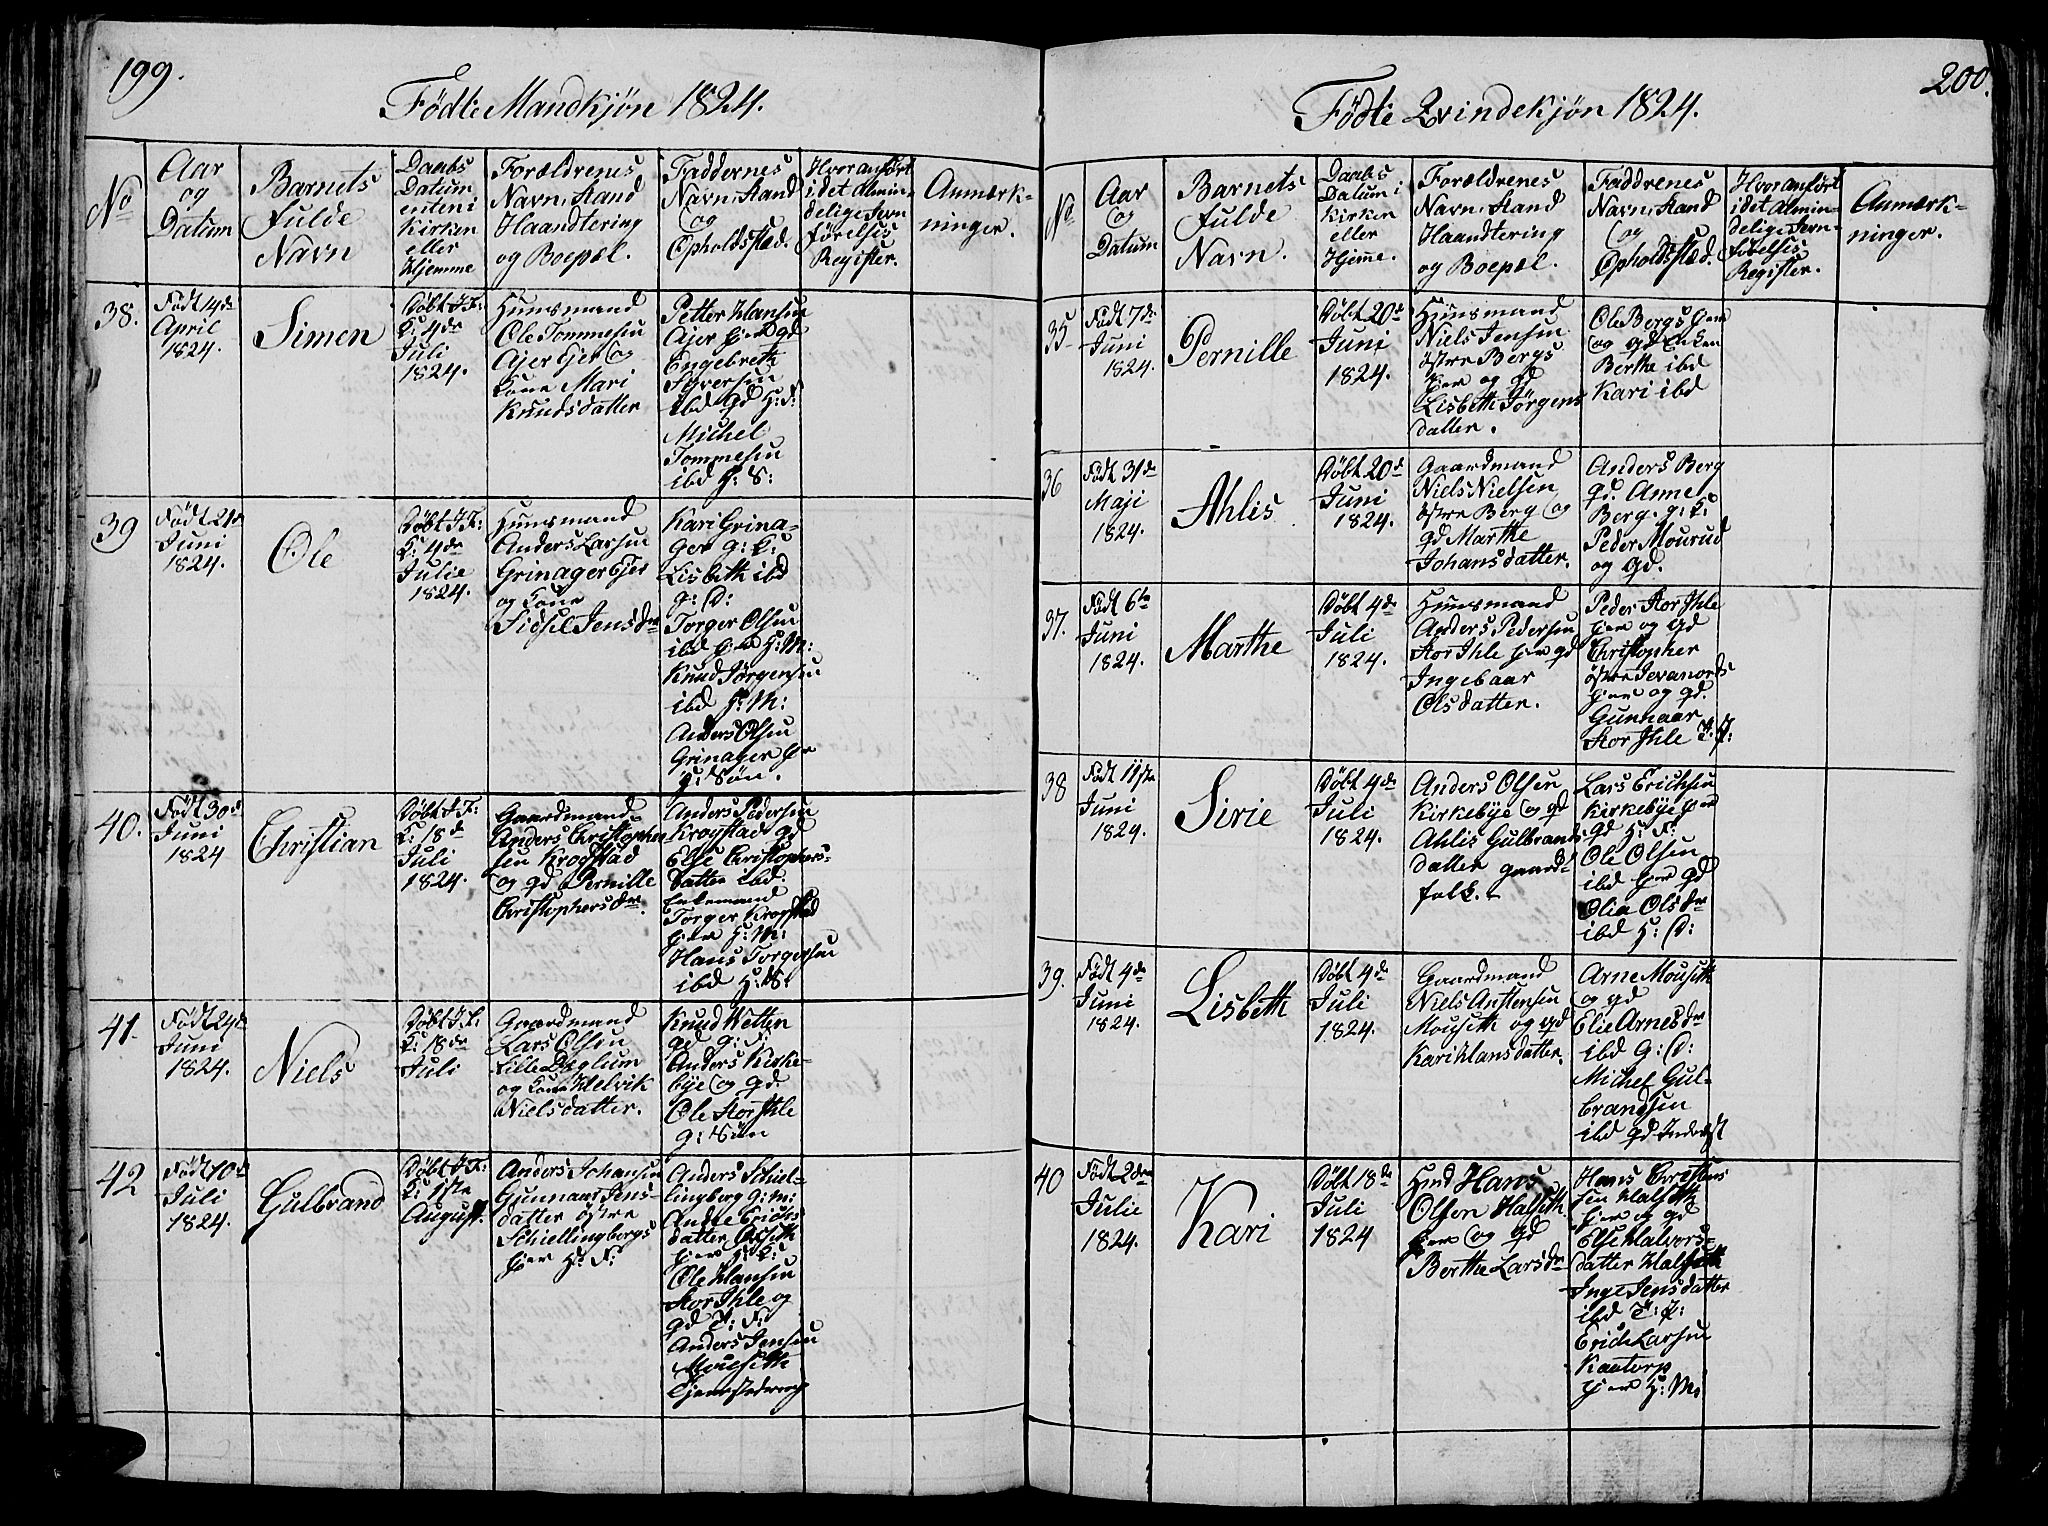 199.
Födte Mandkjøn 1824.
No
Aar
og
Datum
Barnets
fulde
Navn
Daabs
Datum
enten i
Kirken
eller
Hjemme
Forældrenes
Navn, Stand
Haandtering
og Boepæl.
Faddernes
Navn, Stand
og
Opholdsstæd.
Hvor anført
i det Almin-
delige Jevn-
førelses
Register.
Anmærk-
ninger.
38.
Født 4de
April
1824.
Simen
Döbt J. F:
K: 4de
Juli
1824.
Huusmand
Ole Tommesen
Ajer Ejer og
Kone Mari
Knudsdatter
Petter Hansen
Ajer Ejer gd
Engebreth
Syversen
ibd gd H: F:
Michel
Tommesen
ibd H: S:
39
Født 21de
Juni
1824.
Ole
Döbt J. F:
K: 4de
Julie
1824.
Huusmand
Anders Larsen
Grinager Ejer
og Kone
Sidsel Jensdr
Kari Grina-
ger g: K:
Lisbeth ibd
g: D:
Torger Olsen
ibd Ejer H: M:
Knud Jörgensen
ibd H: M:
Anders Olsen
Grinager Ejer
g: Sön.
40.
Født 30de
Juni
1824
Christian
Döbt J. F:
K: 18de
Juli
1824.
Gaardmand
Anders Christopher-
sen Krogstad
og gd Pernille
Christophersdr
Anders Pedersen
Krogstad gd
Else Christophers-
datter ibd
Enkemand
Torger Krogstad
Ejer H: M:
Hans Torgersen
ibd H: S:
41.
Født 24de
Juni
1824.
Niels
Döbt J. F:
K: 18de
Juli
Gaardmand
Lars Olsen
Lille Daglum
og Kone Helvik
Nielsdatter.
Knud Wetten
gd g: F:
Anders Kirke-
bye og gd
Ole Stor Ihle
g: Sön
42
Født 10de
Juli
1824.
Gulbrand
Döbt J. F:
K: 1ste
August.
Anders Johansen
Gunnaar Jens-
datter östre
Schiellingbergs
Ejer H: F:
Anders Schiel-
lingberg g: M:
Andre Erichs
datter
Ejer H: K:
Ole Hansen
Stor Ihle og
gd T: F:
Anders Jensen
Mouseth
200.
Födte Qvindekjøn 1824.
No
Aar
og
Datum
Barnets
fulde
Navn.
Daabs
Datum i
Kirken
eller
Hjeme.
Forældrenes
Navn, Stand
Haandtering
og Boepæl.
Faddrenes
Navn, Stand
og
Opholdsstæd.
Hvor anført
i det Almin-
delige Jevn-
førelses
Register.
Anmærk-
ninger.
35
Født 7de
Juni
1824.
Pernille
Döbt 20de
Juni
1824.
Huusmand
Niels Jensen
östre Bergs
Ejer og gd
Lisbeth Jörgens
datter.
Ole Bergs Ejer
og gd Enken
Berthe ibd
Kari ibd
36
Født 31de
Maji
1824.
Ahlis
Döbt 20de
Juni
1824.
Gaardmand
Niels Nielsen
östre Berg og
gd Marthe
Johansdatter.
Anders Berg
gd. Anne
Berg. g: K:
Peder Mourud
og gd.
37.
Født 6te
Juni
1824.
Marthe
Döbt 4de
Juli
1824.
Huusmand
Anders Pedersen
Stor Ihle Ejer gd
Ingebaar
Olsdatter.
Peder Stor Ihle
Ejer og gd
Christopher
östre Jevanords
Ejer og gd.
Gunnaar
Stor Ihle T: P:
38
Født 11ste
Juni
1824.
Sirie
Döbt 4de
Juli
1824.
Anders Olsen
Kirkebye og gd
Ahlis Gulbrands
datter gaard-
folk.
Lars Erichsen
Kirkebye Ejer
gd H: F:
Ole Olsen
ibd Ejer gd
Olia Olsdr
ibd H: D:
39.
Født 4de
Juni
1824.
Lisbeth
Döbt 4de
Juli
1824.
Gaardmand
Niels Anstensen
Mouseth og gd
Kari Hansdatter.
Arne Mouseth
og gd
Elie Arnesdr
ibd g: D:
Michel Gul-
brandsen
ibd gd Inderst
40
Født 2den
Julie
1824.
Kari
Döbt 18de
Juli
1824
Hmd Hans
Olsen Halseth
Ejer og gd
Berthe Larsdr
Hans Christen
sen Halseth
Ejer og gd
Else Halvors-
datter Halseth
Inge Jensdatter
ibd T: P:
Erich Larsen
Kaatorp
Ejer H: M: